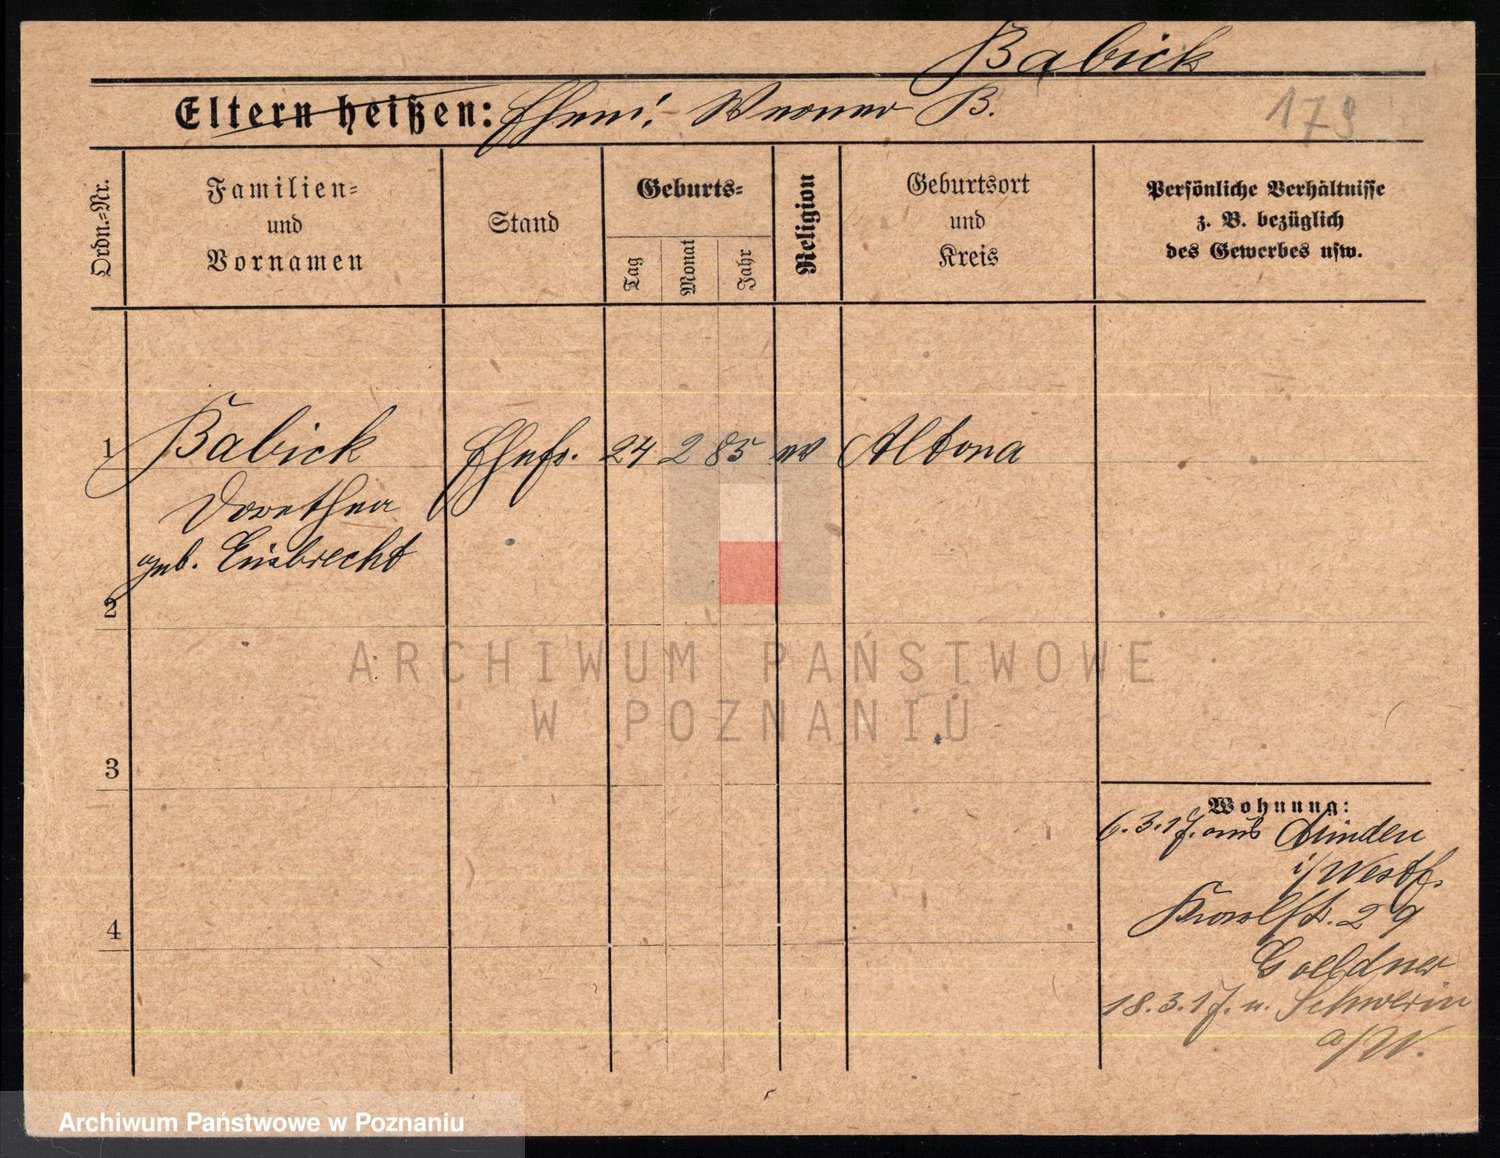 Babick
Eltern heißen: Ehem: Werner B.
173
Ordn.-Nr.
Familien-
und
Vornamen
Stand
Geburts-
Tag
Monat
Jahr
Religion
Geburtsort
und
Kreis
Persönliche Verhältnisse
z. B. bezüglich
des Gewerbes usw.
1
Babick
Dorothea
geb. Eisbrecht
Ehefr. 24 2 85 ev Altona
2
ARCHIWUM PAŃSTWOWE
W POZNANIU
3
4
Wohnung:
6.3.17. aus Minden
i/Westf.
29
Goeldner
18.3.17. n. Schwerin
a/W.
Archiwum Państwowe w Poznaniu